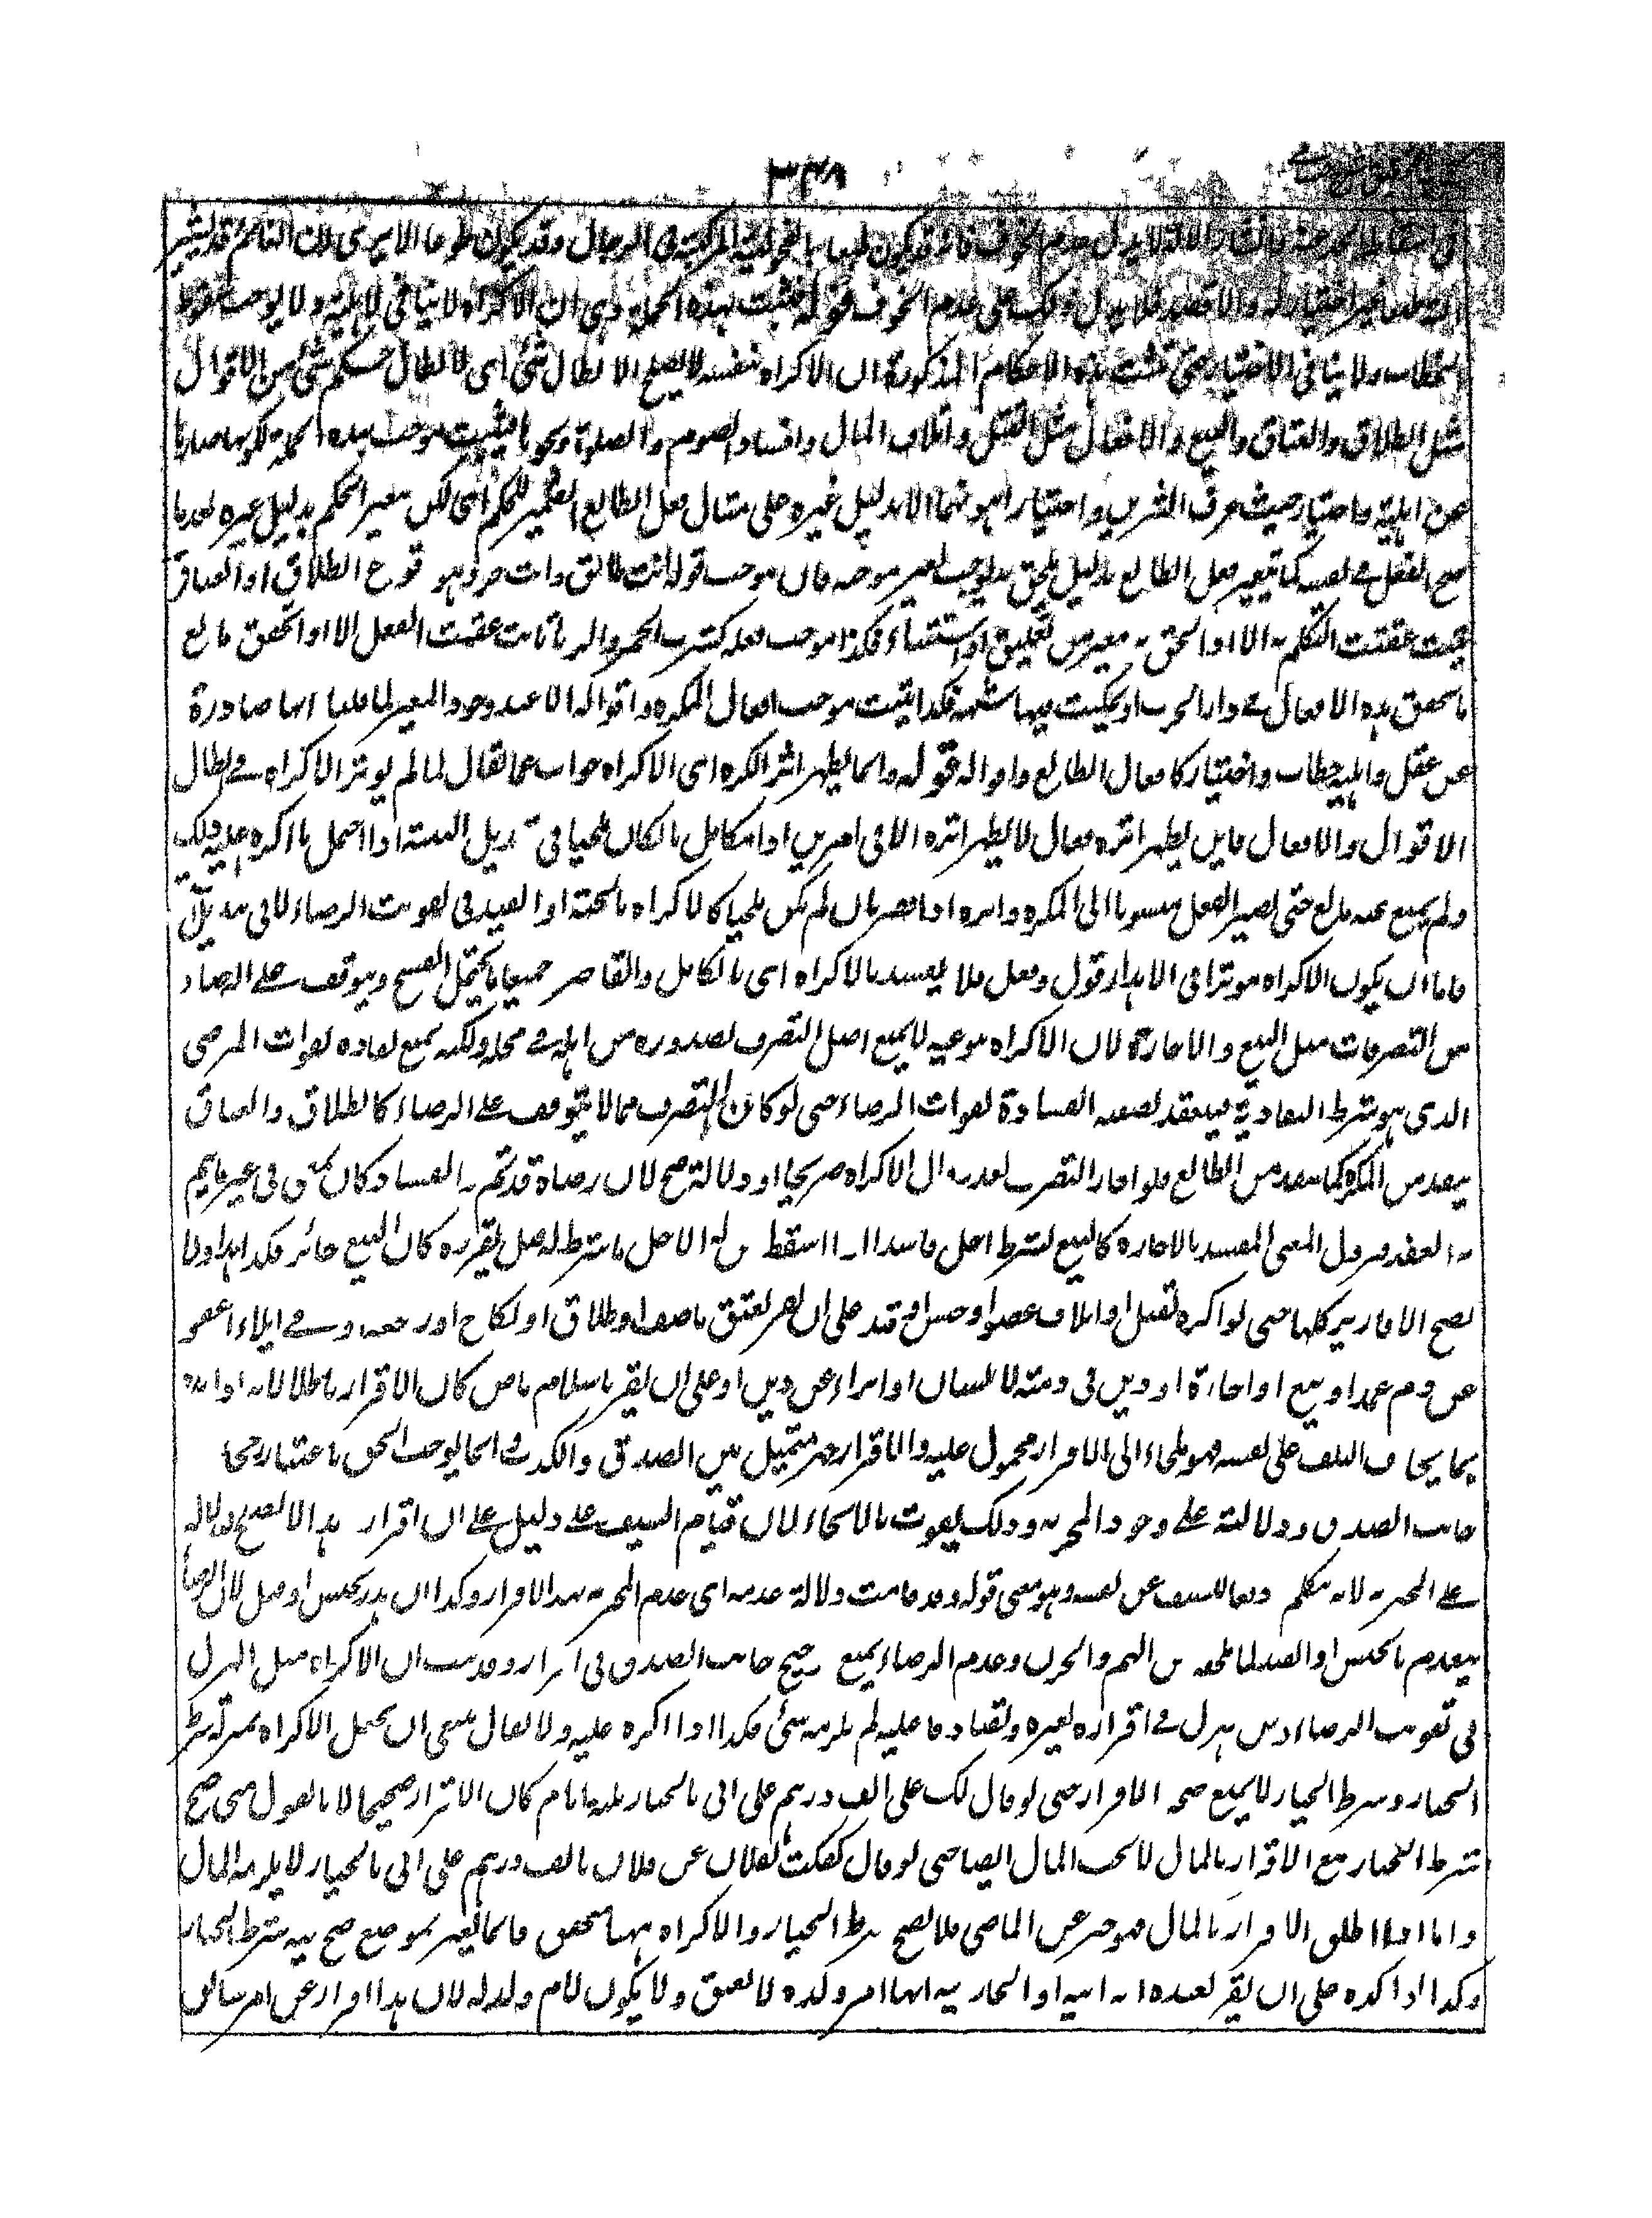 ٣٤٨
لا يدل على عدم الخوف فانه قد يكون طبعا بالفحولية المركبة في الرجال وقد يكون طوعا الا يرى ان النائم قد ينتشر
الته طبعا من غير اختيار له ولا قصد فلا يدل ذلك على عدم الخوف قوله فثبت بهذه الجملة وهي ان الاكراه لا ينافي الاهلية ولا يوجب سقوط
الخطاب ولا ينافي الاختيار حتى تثبت هذه الاحكام المذكورة ان الاكراه بنفسه لا يصلح لابطال شئ اى لا بطال حكم شئ من الاقوال
مثل الطلاق والعتاق والبيع والافعال مثل القتل واتلاف المال وافساد الصوم والصلوة ونحوها فيثبت موجب هذه الجملة لكونها صادرة
عن اهلية واختيار حيث عرف الشرين واختيار اهونهما الا بدليل غيره على مثال فعل الطايع الضمير للحكم اى لكن يتغير الحكم بدليل غيره بعد ما
صح الفعل فى نفسه كما يتغير فعل الطايع بدليل يلحق به يوجب تغيير موجبه فان موجب قوله انت طالق وانت حر وهو وقوع الطلاق او العتاق
يثبت عقيب التكلم به الا اذا لحق به مغير من تعليق او استثناء فكذا موجب فعله كشرب الخمر والزنا ثابت عقيب الفعل الا اذا تحقق مانع
بان تحقق هذه الافعال فى دار الحرب او تمكنت فيها شبهة فكذا يثبت موجب افعال المكره واقواله الا عند وجود المغير لما قلنا انها صادرة
عن عقل واهلية خطاب واختيار كافعال الطايع واقواله قوله وانما يظهر اثر الكره اى الاكراه جواب عما يقال لما لم يوثر الاكراه فى ابطال
الاقوال والافعال فاين يظهر اثره فقال لا يظهر اثره الا فى امرين اذا تكامل بان كان ملجيا فى تبديل النسبة اذا احتمل ما اكره عليه ذلك
ولم يمنع عنه مانع حتى يصير الفعل منسوبا الى المكره واثره اذا قصر بان لم يكن ملجيا كالاكراه بالحبس او القيد فى تفويت الرضاء لا فى تبديل
فاما ان يكون الاكراه موثرا فى اهدار قول وفعل فلا يفسد بالاكراه اى بالكامل والقاصر جميعا ما يحتمل الفسخ ويتوقف على الرضاء
من التصرفات مثل البيع والاجارة لان الاكراه بنوعيه لا يمنع اصل التصرف لصدوره من اهله فى محله ولكنه يمنع نفاذه لفوات الرضى
الذى هو شرط النفاذ فينعقد بصفة الفساد لفوات الرضاء حتى لو كان التصرف مما لا يتوقف على الرضاء كالطلاق والعتاق
ينفذ من المكره كما ينفذ من الطايع فلو اجاز التصرف بعد زوال الاكراه صريحا او دلالة صح لان رضاه قد تم والفساد كان لمعنى فى غير ما يتم
به العقد فيزول المعنى المفسد بالاجازة كالبيع بشرط اجل فاسد اذا اسقط من له الاجل ما شرط له قبل تقرره كان البيع جائزا فكذا هذا ولا
يصح الاقارير كلها حتى لو اكره بقتل او اتلاف عضو او حبس او قيد على ان يقر بعتق ماض او طلاق او نكاح او رجعة او فئ فى ايلاء او عفو
عن دم عمدا او بيع او اجارة او دين فى ذمته لانسان او ابراء عن دين او على ان يقر باسلام ماض كان الاقرار باطلا لانه اذا هدد
بما يخاف التلف على نفسه فهو ملجاء الى الاقرار محمول عليه والاقرار خبر متميل بين الصدق والكذب فانما يوجب الحق باعتبار رجحان
جانب الصدق ودلالته على وجود المخبر به وذلك يفوت بالالجاء لان قيام السيف على دليل على ان اقراره هذا لا يصلح دلالة
على المخبر به لانه يتكلم دفعا للسيف عن نفسه وهو معنى قوله وقد قامت دلالة عدمه اى عدم المخبر به بهذا الاقرار وكذا ان هدد بحبس او قيد لان الرضاء
ينعدم بالحبس او القيد لما يلحقه من الهم والحزن وعدم الرضاء يمنع رجح جانب الصدق فى اقراره وقد بينا ان الاكراه مثل الهزل
فى تفويت الرضاء ومن هزل فى اقراره لغيره وتصادقا عليه لم يلزمه شئ فكذا اذا اكره عليه ولا يقال ينبغى ان يجعل الاكراه بمنزلة شرط
الخيار وشرط الخيار لا يمنع صحة الاقرار حتى لو قال لك على الف درهم على انى بالخيار ثلثة ايام كان الاقرار صحيحا لانا نقول متى صح
شرط الخيار مع الاقرار بالمال لا يجب المال ايضا حتى لو قال كفلت لفلان عن فلان بالف درهم على انى بالخيار لا يلزمه المال
واما اذا اطلق الاقرار بالمال فهو خبر عن الماضى فلا يصح شرط الخيار والاكراه ههنا متحقق فانما يعتبر بموضع صح فيه شرط الخيار
وكذا اذا اكره على ان يقر لعبده انه ابنه او لجاريته انها ام ولده لا يعتق ولا يكون ام ولد له لان هذا اقرار عن امر سابق